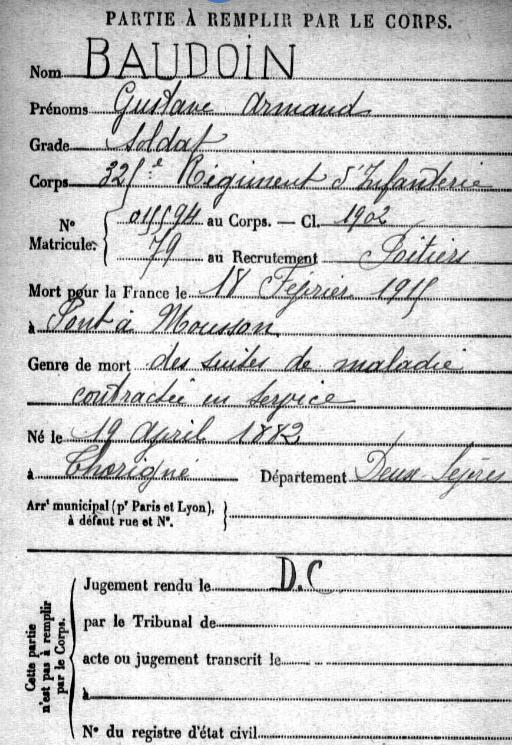 PARTIE À REMPLIR PAR LE CORPS.
Nom BAUDOIN
Prénoms Gustave Armand
Grade Soldat
Corps 325e Régiment d'Infanterie
N° Matricule. 015594 au Corps. — Cl. 1902
79 au Recrutement Poitiers
Mort pour la France le 18 Février 1915
à Pont à Mousson
Genre de mort des suites de maladie
contractée en service
Né le 19 April 1882
à Thorigné Département Deux-Sèvres
Arrt municipal (pr Paris et Lyon),
à défaut rue et N°.
Cette partie n'est pas à remplir par le Corps.
Jugement rendu le D.C
par le Tribunal de
acte ou jugement transcrit le
à
N° du registre d'état civil